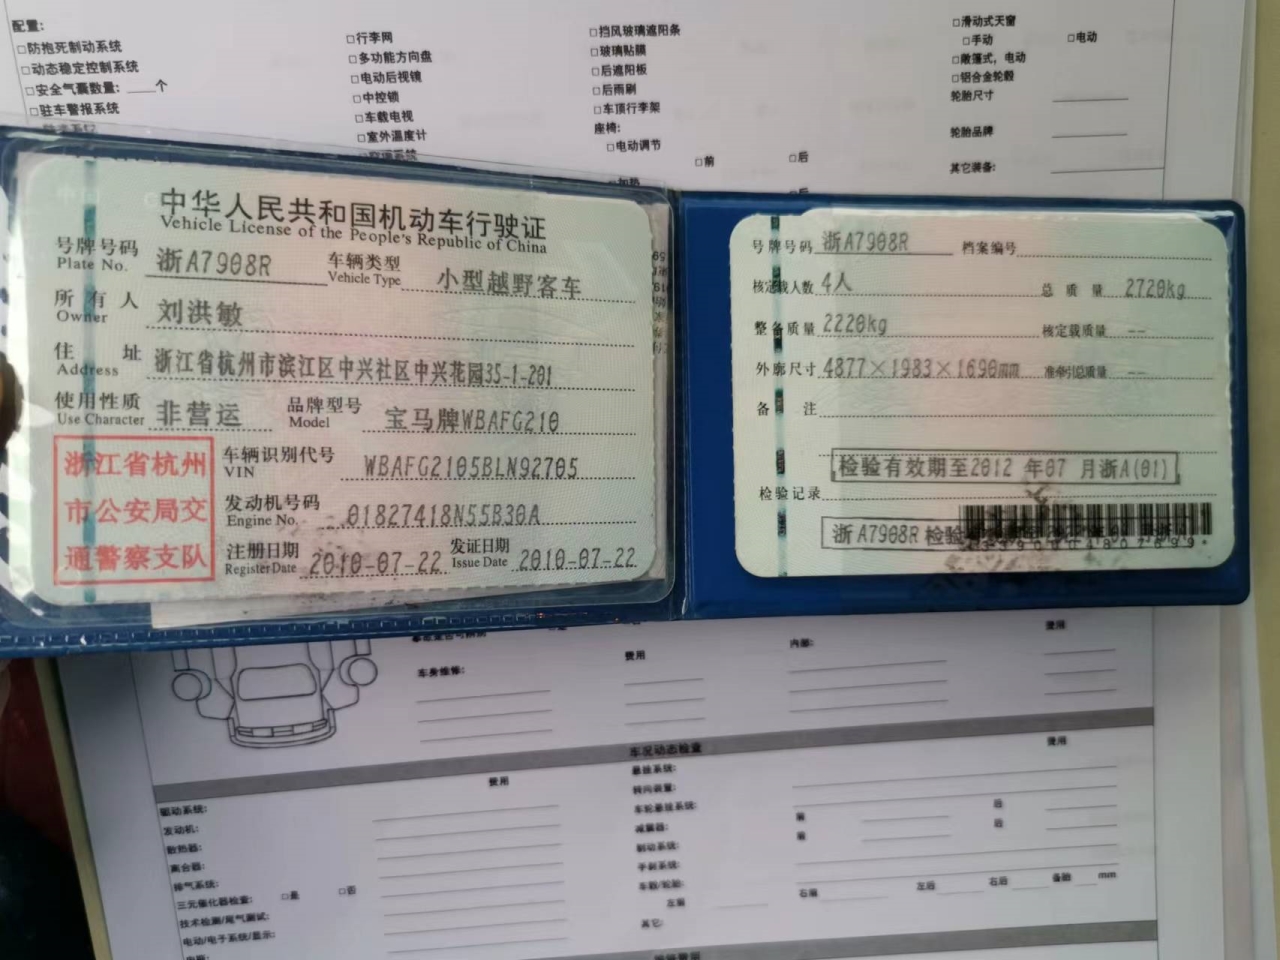 配置:
□防抱死制动系统
□动态稳定控制系统
□安全气囊数量: ____个
□驻车警报系统
□行李网
□多功能方向盘
□电动后视镜
□中控锁
□车载电视
□室外温度计
□挡风玻璃遮阳条
□玻璃贴膜
□后遮阳板
□后雨刷
□车顶行李架
座椅:
□电动调节
□前 □后
□滑动式天窗
□手动 □电动
□敞篷式，电动
□铝合金轮毂
轮胎尺寸
轮胎品牌
其它装备:
中华人民共和国机动车行驶证
Vehicle License of the People's Republic of China
号牌号码 浙A7908R 车辆类型 小型越野客车
Plate No. Vehicle Type
所有人 刘洪敏
Owner
住址 浙江省杭州市滨江区中兴社区中兴花园35-1-201
Address
使用性质 非营运 品牌型号 宝马牌WBAFG210
Use Character Model
浙江省杭州
市公安局交
通警察支队
车辆识别代号 WBAFG2105BLN92705
VIN
发动机号码 01827418N55B30A
Engine No.
注册日期 2010-07-22 发证日期 2010-07-22
Register Date Issue Date
号牌号码 浙A7908R 档案编号
核定载人数 4人 总质量 2720kg
整备质量 2220kg 核定载质量 --
外廓尺寸 4877×1983×1690mm 准牵引总质量 --
备注
检验有效期至2012 年07 月浙A(01)
检验记录
浙A7908R 检验
车身维修:
费用
内部:
费用
车况动态检查
费用
费用
驱动系统:
发动机:
散热器:
离合器:
排气系统:
三元催化器检查: □是 □否
技术检测/尾气测试:
电动/电子系统/显示:
悬挂系统:
转向装置:
车轮悬挂系统: 前 后
减震器: 前 后
制动系统:
手刹系统:
车毂/轮胎: 右前 左后 右后 备胎 mm
左前
其它: